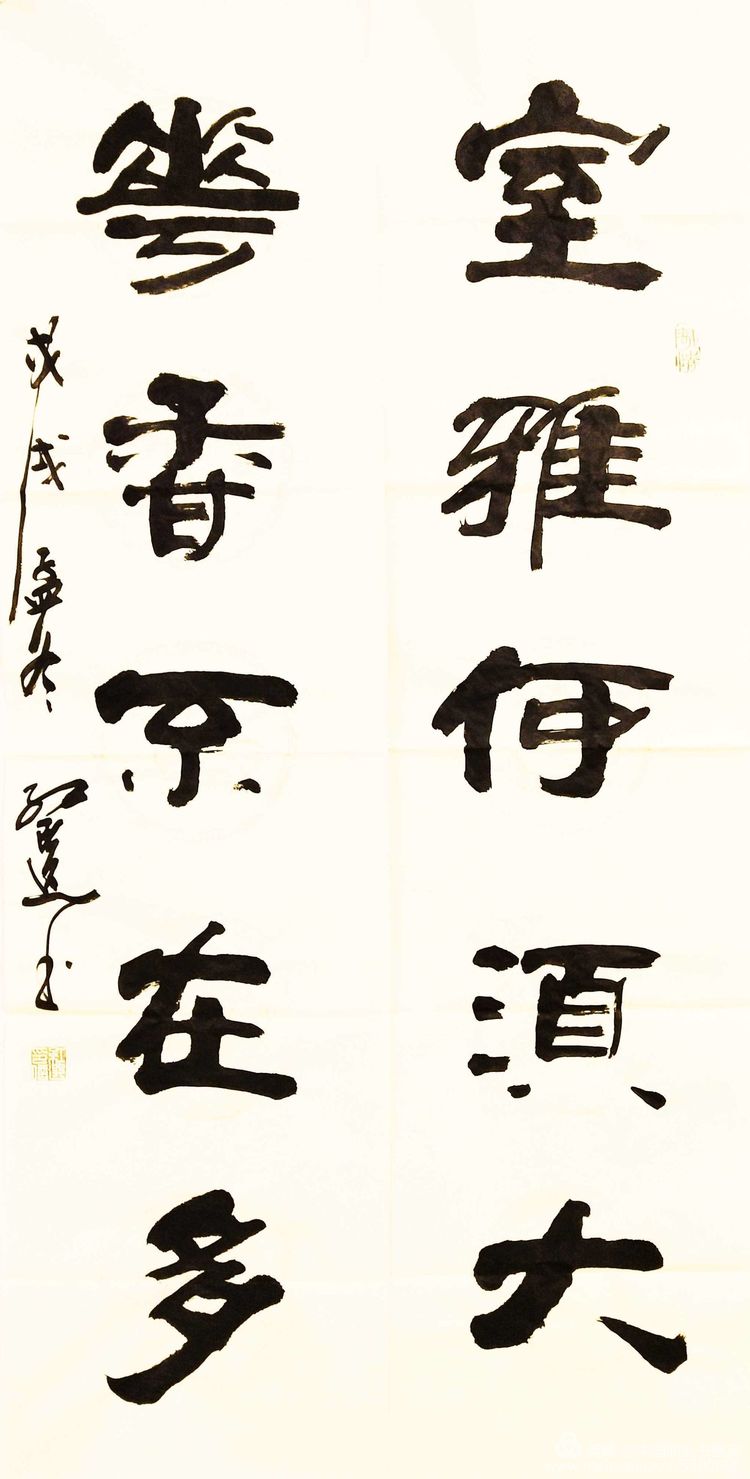 室雅何須大
花香不在多
戊戌孟冬